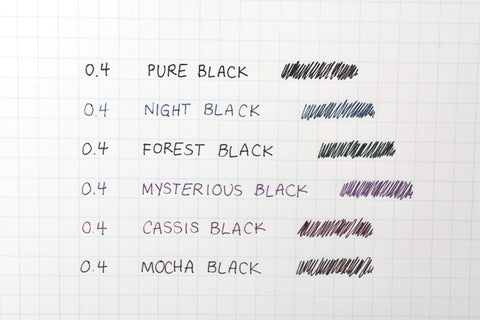 0.4 PURE BLACK
0.4 NIGHT BLACK
0.4 FOREST BLACK
0.4 MYSTERIOUS BLACK
0.4 CASSIS BLACK
0.4 MOCHA BLACK